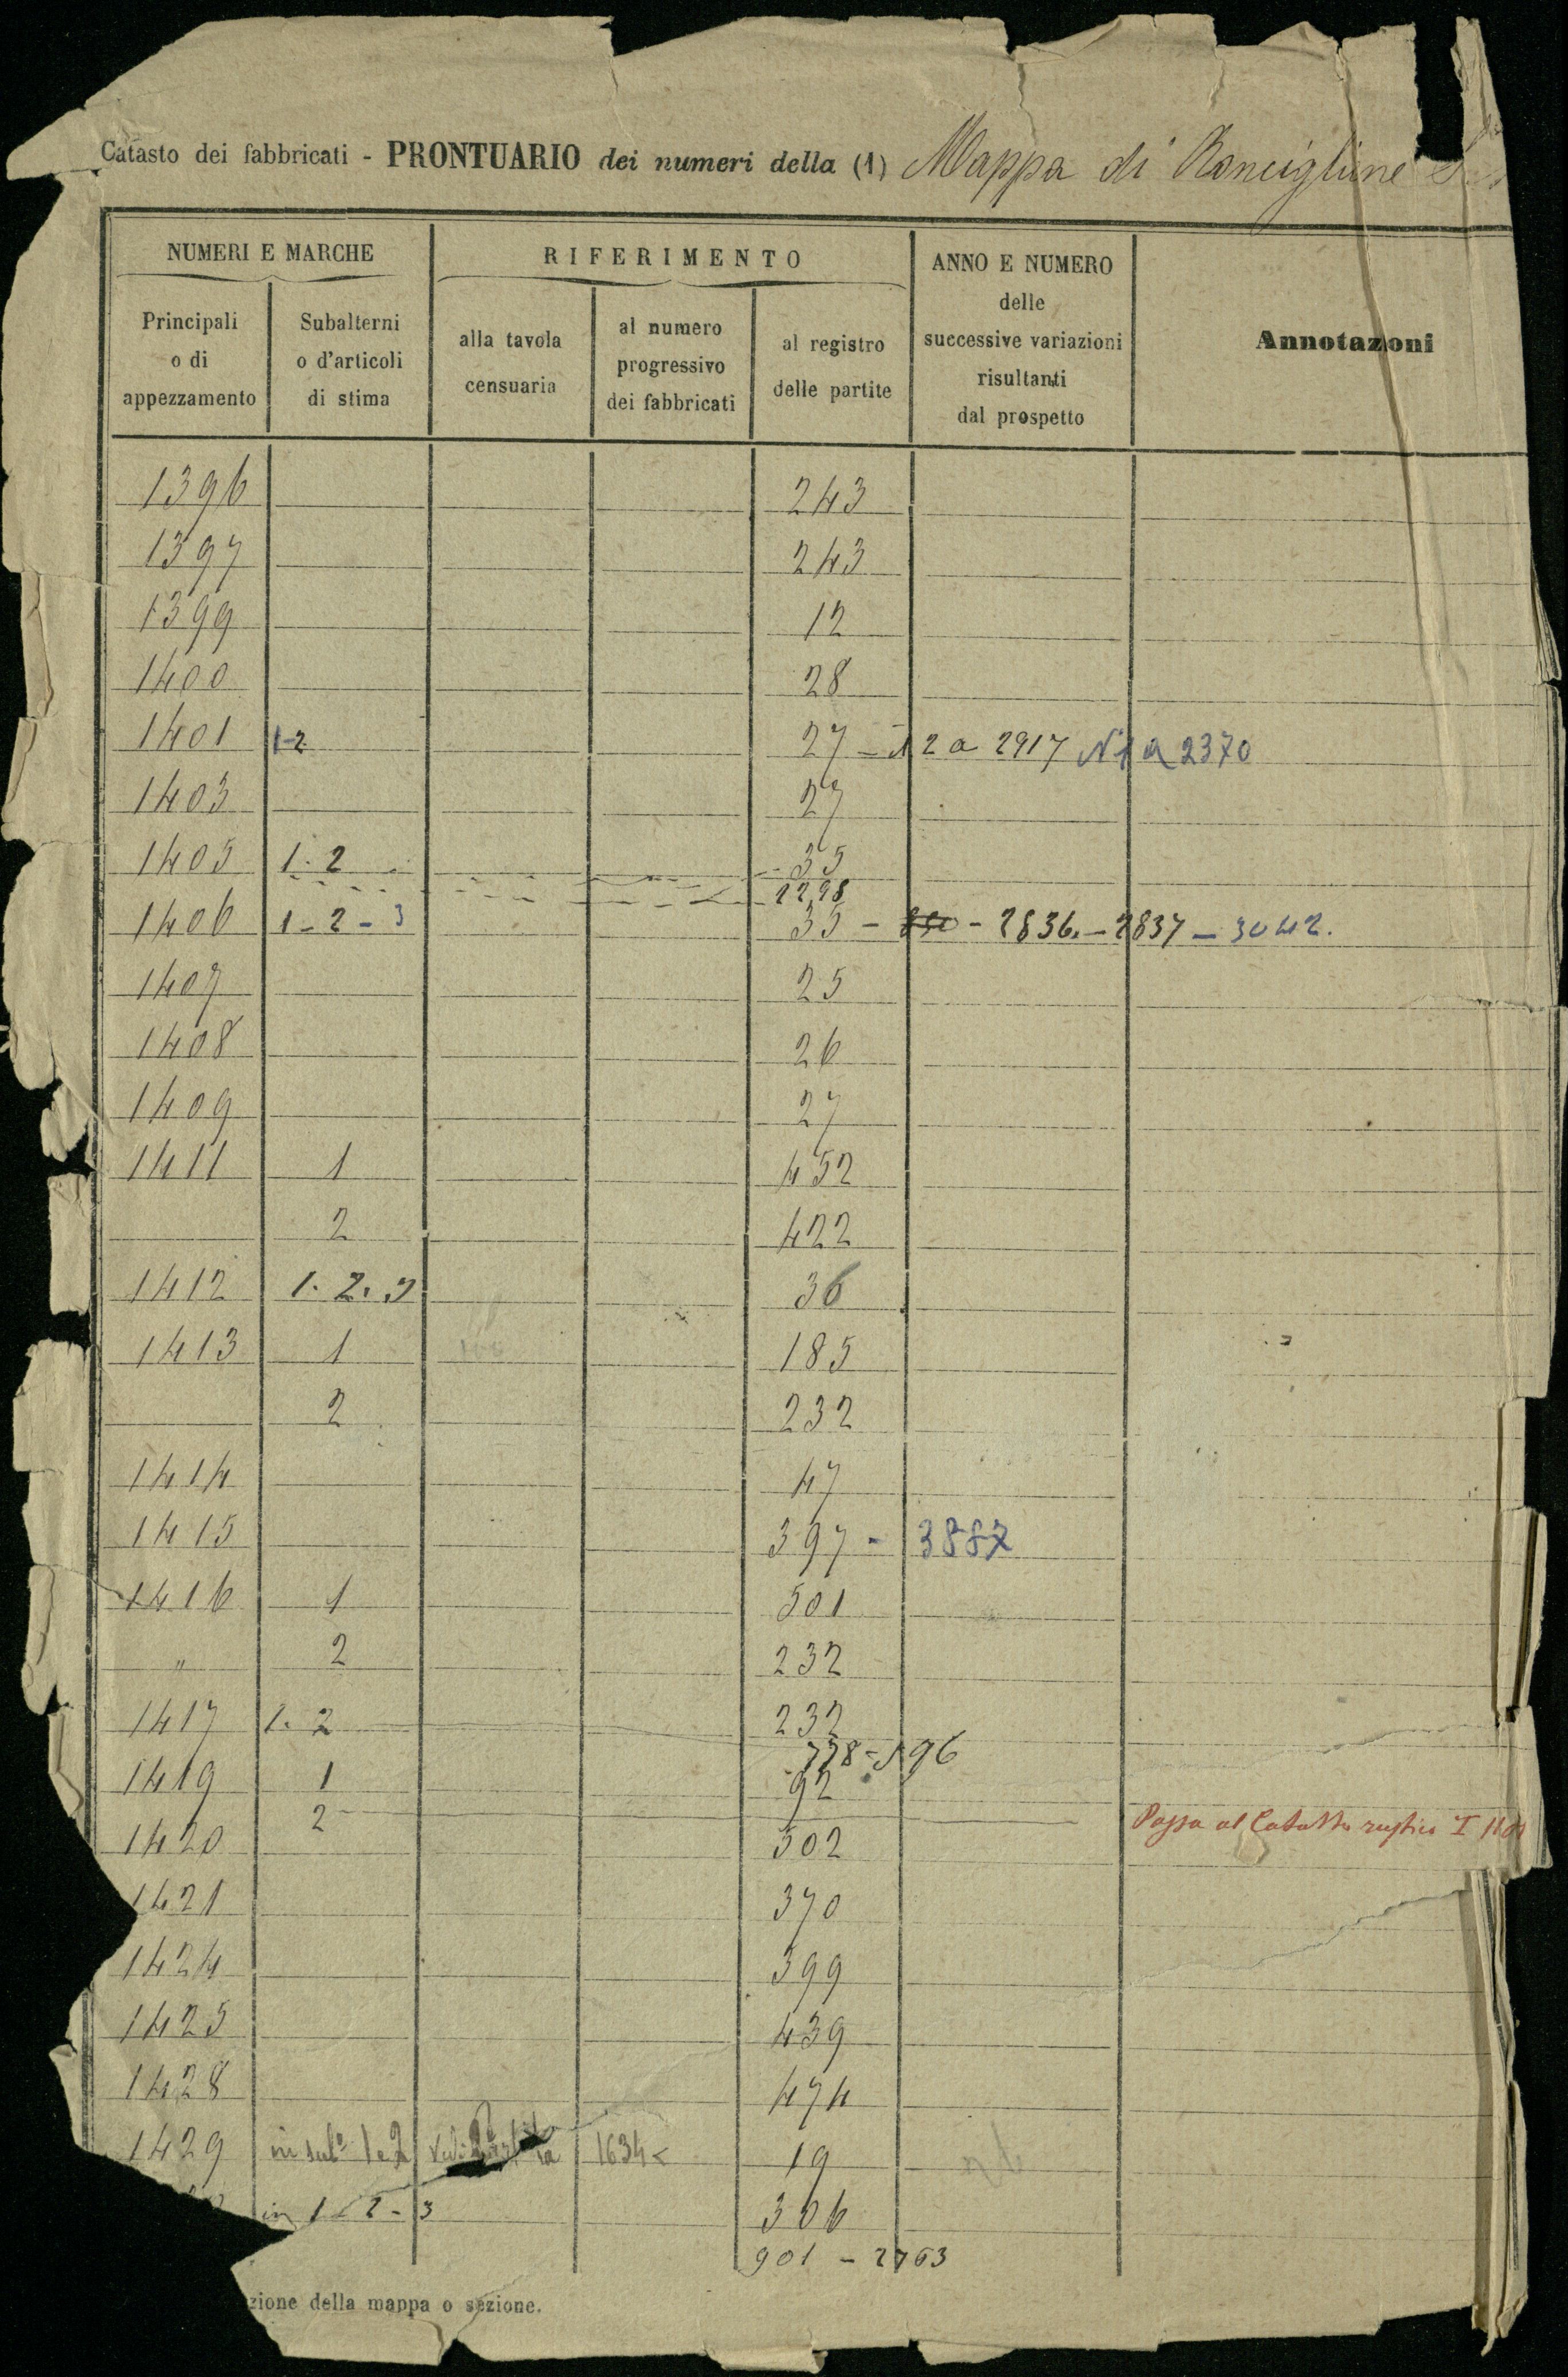 Catasto dei fabbricati - PRONTUARIO dei numeri della (1) Mappa di Ronciglione
NUMERI E MARCHE
RIFERIMENTO
ANNO E NUMERO
delle
successive variazioni
risultanti
dal prospetto
Annotazioni
Principali
o di
appezzamento
Subalterni
o d'articoli
di stima
alla tavola
censuaria
al numero
progressivo
dei fabbricati
al registro
delle partite
1396 243
1397 243
1399 12
1400 28
1401 1-2 27 - 12 a 2917 N1 a 2370
1403 27
1405 1. 2 35
2298
1406 1-2-3 35 - - 2836. - 2837 - 3042.
1407 25
1408 26
1409 27
1411 1 452
2 422
1412 1. 2. 3 36
1413 1 185
2 232
1414 47
1415 397 - 3887
1416 1 501
" 2 232
1417 1. 2 232
778 - 596
1419 1 92
2 Passa al Catasto rustico I
1420 302
1421 370
1424 399
1425 439
1428 474
1429 in sub° 1 e 2 1634 19
in 1-2-3 306
901 - 2763
zione della mappa o sezione.